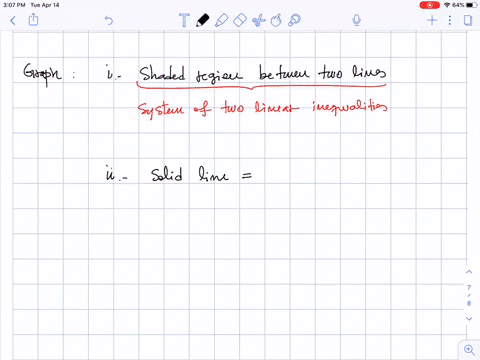 3:07 PM Tue Apr 14
64%
Graph : i.- Shaded region between two lines
System of two linear inequalities
ii.- Solid line =
7
8